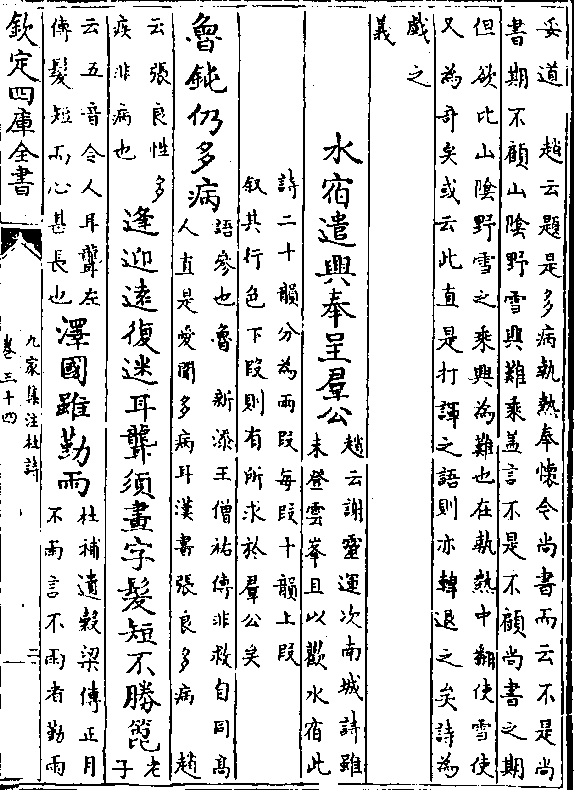 妥道　趙云題是多病執熱奉懷令尚書而云不是尚
書期不顧山陰野雪興難乘盖言不是不顧尚書之期
但欲比山陰野雪之乘興為難也在執熱中翻使雪使
又為奇矣或云此直是打諢之語則亦轉退之矣詩為
戲之
義
水宿遣興奉呈羣公
趙云謝靈運次南城詩雖
未登雲峯且以歡水宿此
詩二十韻分為兩段每段十韻上段
叙其行色下段則有所求於羣公矣
魯鈍仍多病
語參也魯　新添王僧祐傳非敢自同高
人直是愛閒多病耳漢書張良多病　趙
云張良性多
疾非病也
逢迎遠復迷耳聾須畫字髮短不勝篦
老
子
云五音令人耳聾左
傳髮短而心甚長也
澤國雖勤雨
杜補遺穀梁傳正月
不雨言不雨者勤雨
欽定四庫全書
九家集注杜詩
卷三十四
二